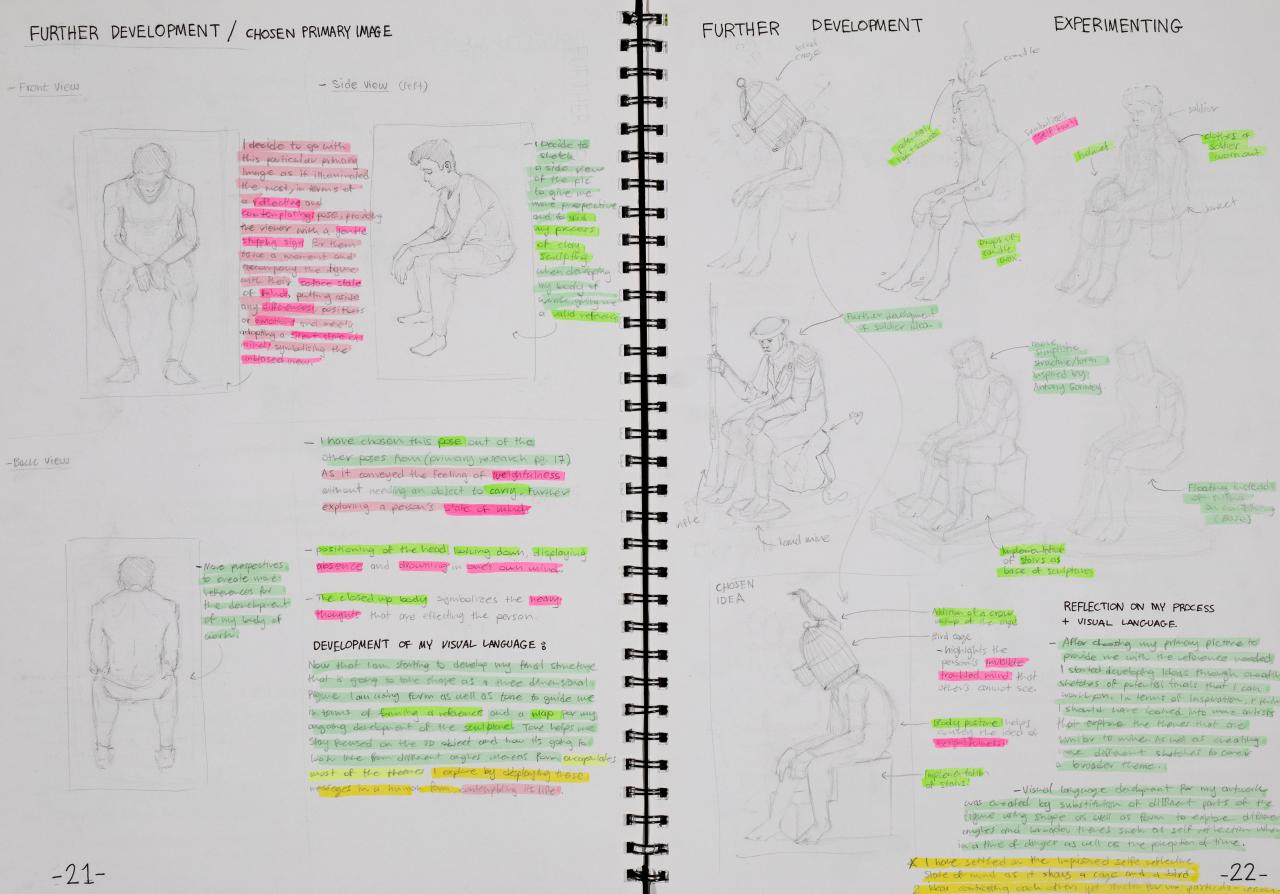 FURTHER DEVELOPMENT / CHOSEN PRIMARY IMAGE
- Front View
- Side View (left)
I decide to go with
this particular primary
image as it illuminated
the most, in terms of
a reflecting and
contemplating pose, providing
the viewer with a gentle
stopping sign for them
take a moment and
accompany the figure
with their state
of mind, putting aside
any differences, positives
or and
adopting a state of
mind, symbolising the
unbiased view.
- I decide to
sketch
a side view
of the pic
to give me
more perspective
and to aid
my process
of clay
sculpting
when developing
my body of
work, giving me
a valid reference
- Back View
- More perspectives
to create more
references for
the development
of my body of
work.
- I have chosen this pose out of the
other poses from (primary research pg. 17)
As it conveyed the feeling of weightfulness
without needing an object to carry, further
exploring a person's state of mind.
- positioning of the head looking down, displaying
absence and drowning in one's own mind.
- The closed up body symbolizes the heavy
thoughts that are effecting the person.
DEVELOPMENT OF MY VISUAL LANGUAGE :
Now that I am starting to develop my final structure
that is going to take shape as a three dimensional
figure. I am using form as well as tone to guide me
in terms of forming a reference and a map for my
ongoing development of the sculpture. Tone helps me
stay focused on the 3D object and how its going to
look like from different angles whereas form encapsulates
most of the themes I explore by displaying those
messages in a human form contemplating its life.
-21-
FURTHER DEVELOPMENT
EXPERIMENTING
bird cage
candle
symbolizes self
soldier
helmet
clothes of
soldier
worn out
Drops of
candle
wax.
Further development
of soldier idea
structure/form
inspired by
Antony Gormley
rifle
land mine
Floating instead
of sitting
on something
Implementation
of stairs as
base of sculpture
CHOSEN
IDEA
Addition of a crow
on top of the cage
Bird cage
- highlights the
person's invisible
troubled mind that
others cannot see.
Body posture helps
convey the idea of
weightfulness
Implementation
of stairs.
REFLECTION ON MY PROCESS
+ VISUAL LANGUAGE.
- After choosing my primary picture to
provide me with the reference needed
I started developing ideas through creating
sketches of potential trials that I can
work on. In terms of inspiration, I think
I should have looked into more artists
that explore the themes that are
similar to mine as well as creating
more different sketches to cover
a broader theme.
- Visual language development for my artwork
was created by substitution of different parts of the
figure using shape as well as form to explore different
angles and broaden themes such as self reflection when
in a time of danger as well as the perception of time.
* I have settled on the self reflective
state of mind as it shows a cage and a bird
-22-